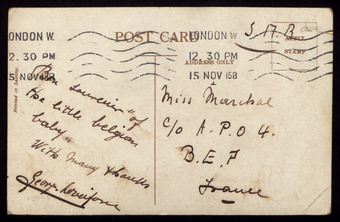 LONDON W.
12. 30 PM
15 NOV 15B
POST CARD
ADDRESS ONLY
LONDON W
12. 30 PM
15 NOV 15B
STAMP
"souvenir" of
the little belgian
baby"
With many thanks
Miss Marchal
C/o A.P.O 4.
B.E.F
France